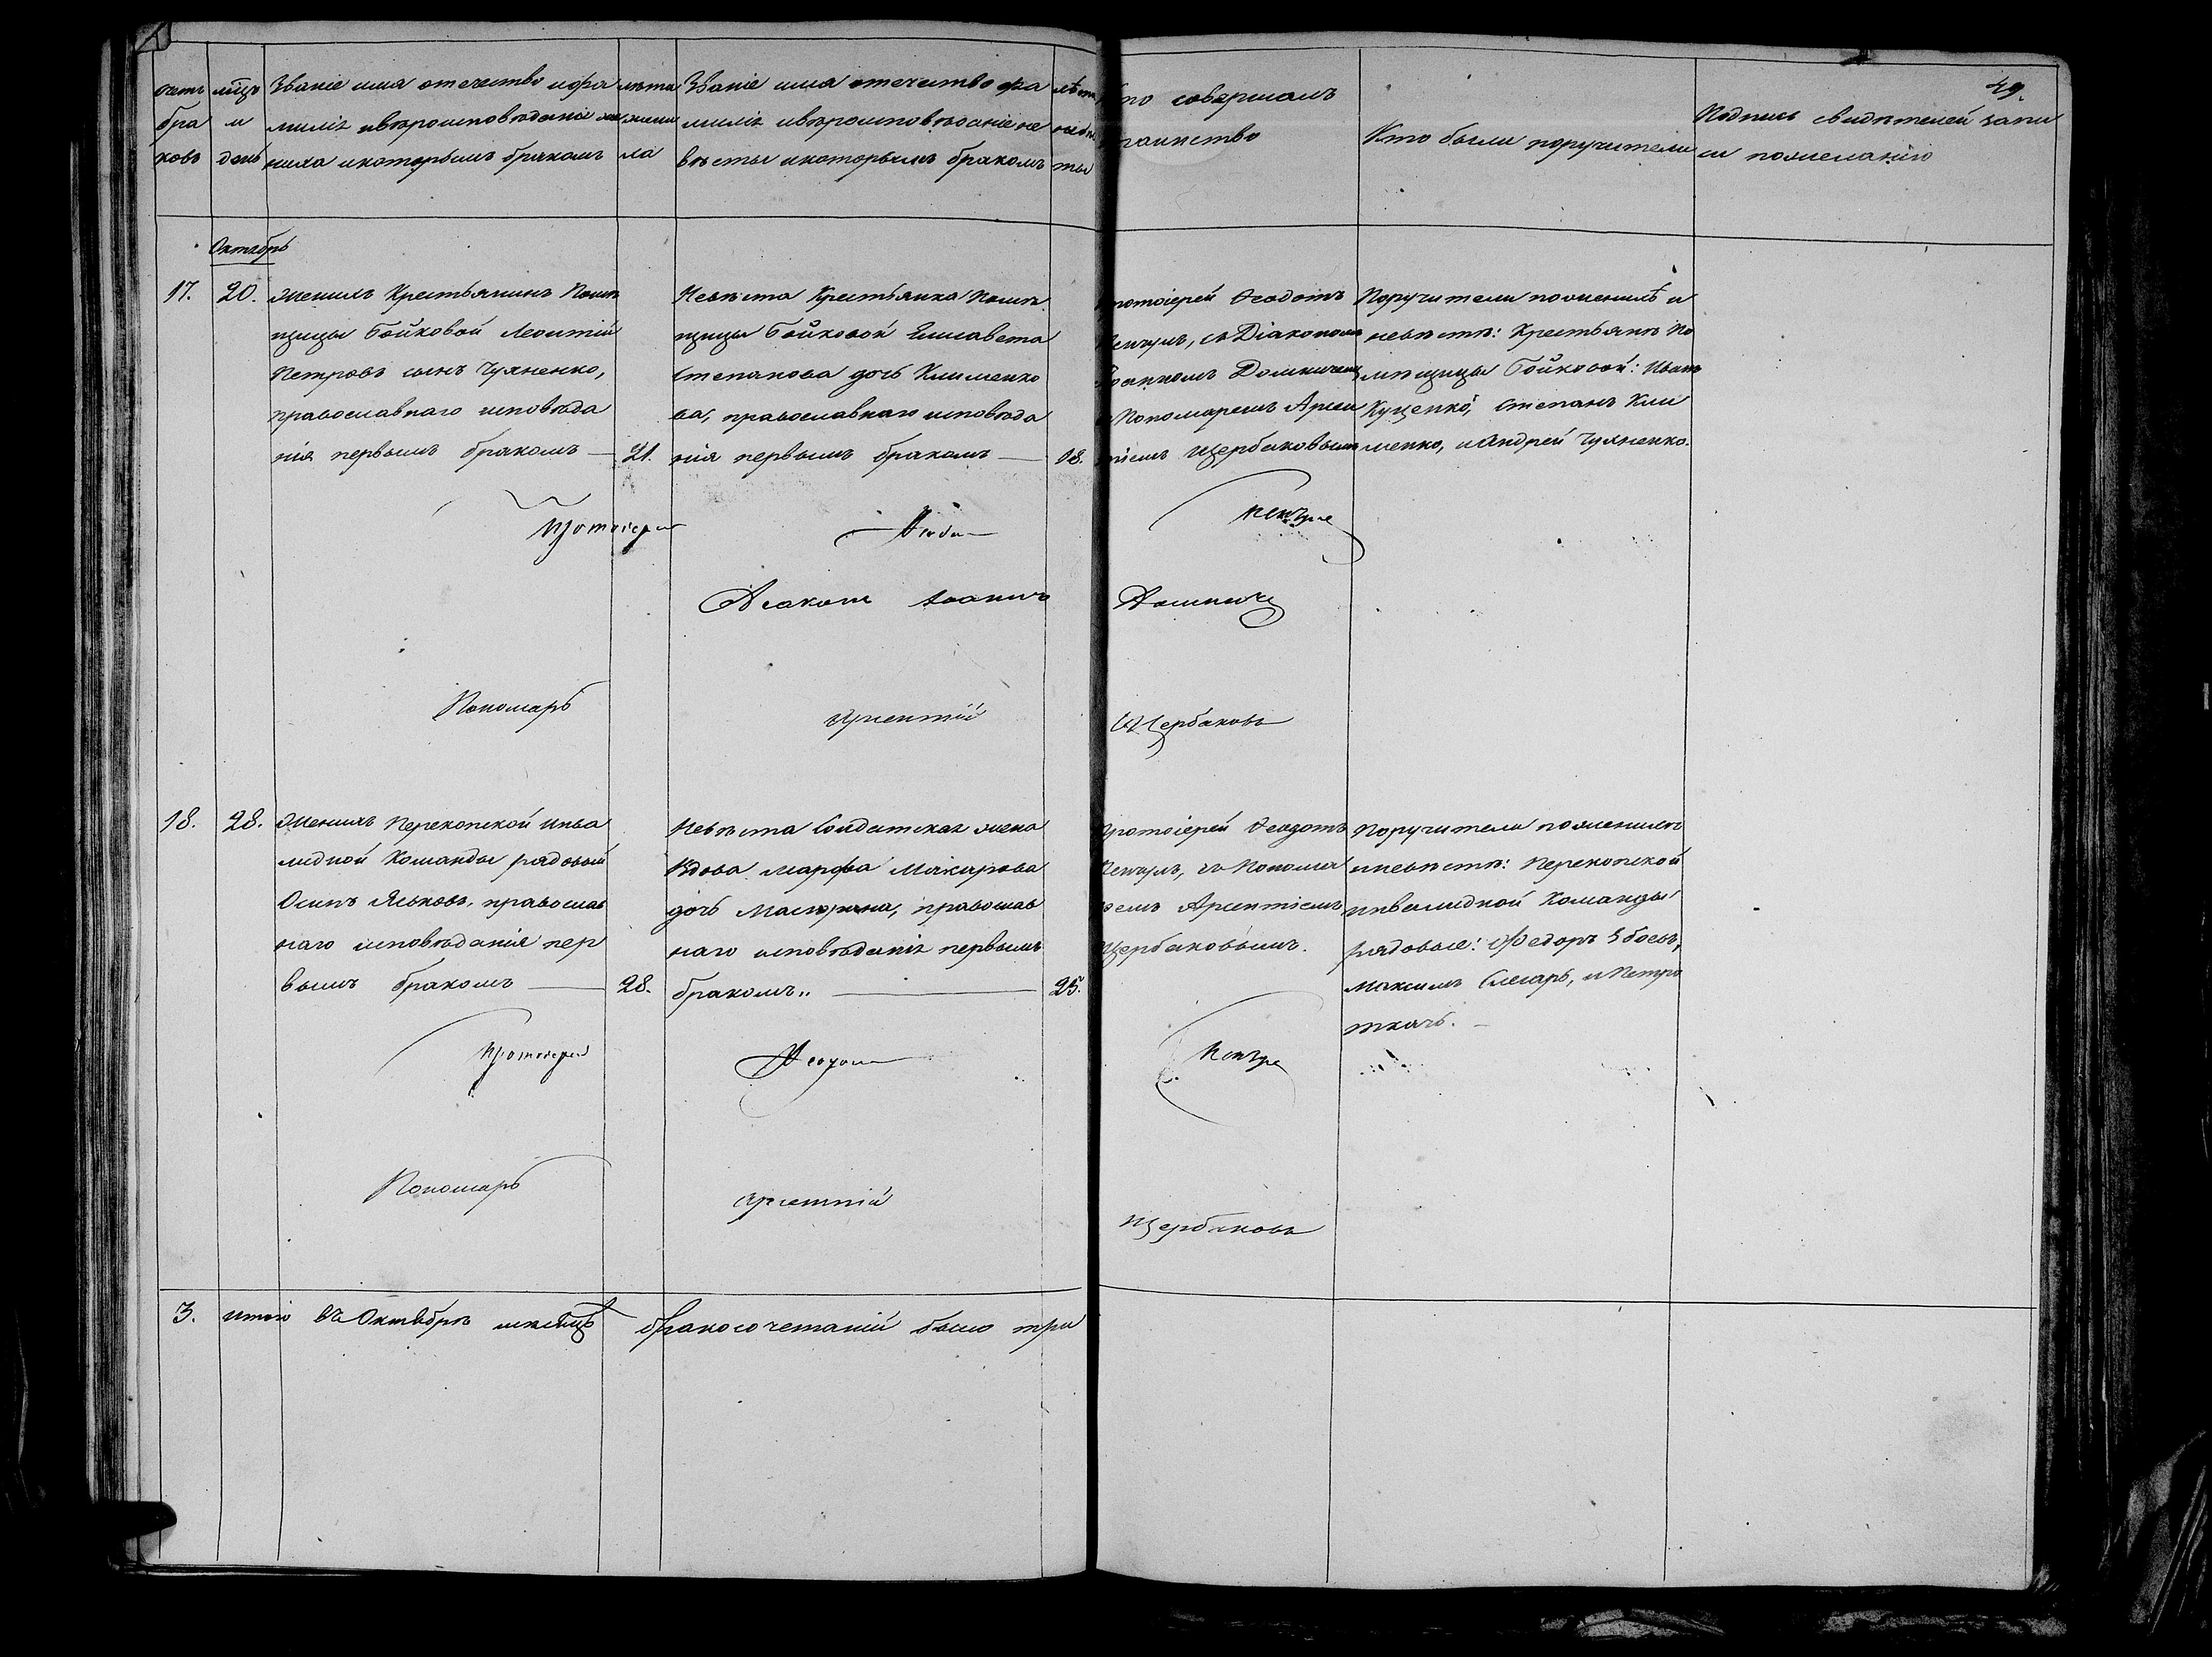 49.
счетъ браковъ
мѣцъ и день
Званіе имя отечество и фа
милія и вѣроисповѣданіе же
ниха и которымъ бракомъ
лѣта
жени
ха
Званіе имя отечество фа
милія и вѣроисповѣданіе не
вѣсты и которымъ бракомъ
лѣта
невѣс
ты
Кто совершалъ
таинство
Кто были поручители
Подпись свидѣтелей запи
си по желанію
Октябрь
17.
20.
Женихъ Крестьянинъ Помѣ
щицы Бойковой Леонтій
Петровъ сынъ Чуяненко,
православнаго исповѣда
нія первымъ бракомъ — 21.
Невѣста Крестьянка Помѣ
щицы Бойковой Елисавета
Степанова дочь Клименко
ва, православнаго исповѣда
нія первымъ бракомъ — 18.
Протоіерей Ѳеодотъ
съ Діакономъ
Іоанномъ
и Пономаремъ Арсен
тіемъ Щербаковымъ
Поручители по женихѣ и
невѣстѣ: Крестьяне По
мѣщицы Бойковой: Иванъ
Куценко, Степанъ Кли
менко, и Андрей Чуяненко.
Протоіерей
Діаконъ Іоаннъ
Пономарь Арсентій Щербаковъ
18.
28.
Женихъ Перекопской Инва
лидной Команды рядовый
Осипъ Яськовъ, православ
наго исповѣданія пер
вымъ бракомъ — 28.
Невѣста Солдатская жена
Вдова Марфа Макарова
дочь православ
наго исповѣданія первымъ
бракомъ — 25.
Протоіерей Ѳеодотъ
съ Понома
ремъ Арсентіемъ
Щербаковымъ.
Поручители по женихѣ
и невѣстѣ: Перекопской
инвалидной Команды
рядовые: Федоръ
Максимъ Слесарь, и Петръ
Ткачъ.
Протоіерей Ѳеодотъ
Пономарь Арсентій Щербаковъ
3. итого въ Октябрѣ мѣсяцѣ бракосочетаній было три